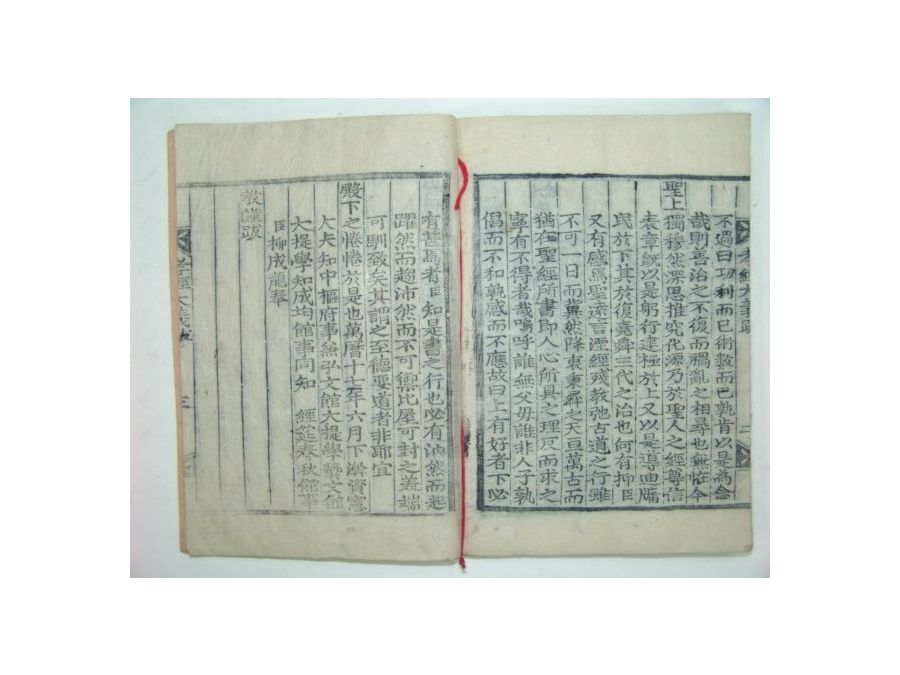 不過曰功利而已術數而已孰肯以是為念
哉則善治之不復而禍亂之相尋也無怪今
聖上
獨穆然深思推究化源乃於聖人之經尊信
表章旣以是躬行建極於上又以是導迪牖
民於下其於復堯舜三代之治也何有抑臣
又有感焉聖遠言湮經殘教弛古道之行雖
不可一日而冀然降衷秉彝之天亘萬古而
猶在聖經所書即人心所具之理反而求之
寧有不得者哉嗚呼誰無父母誰非人子孰
倡而不和孰感而不應故曰上有好者下必
有甚焉者臣知是書之行也必有油然而起
躍然而趨沛然而不可禦比屋可封之美端
可馴致矣其謂之至德要道者非耶宜
殿下之惓惓於是也萬曆十七年六月下澣資憲
大夫知中樞府事兼弘文館大提學藝文館
大提學知成均館事同知 經筵春秋館事
臣柳成龍奉
教謹跋
孝經大義跋
二
孝經大義跋
三